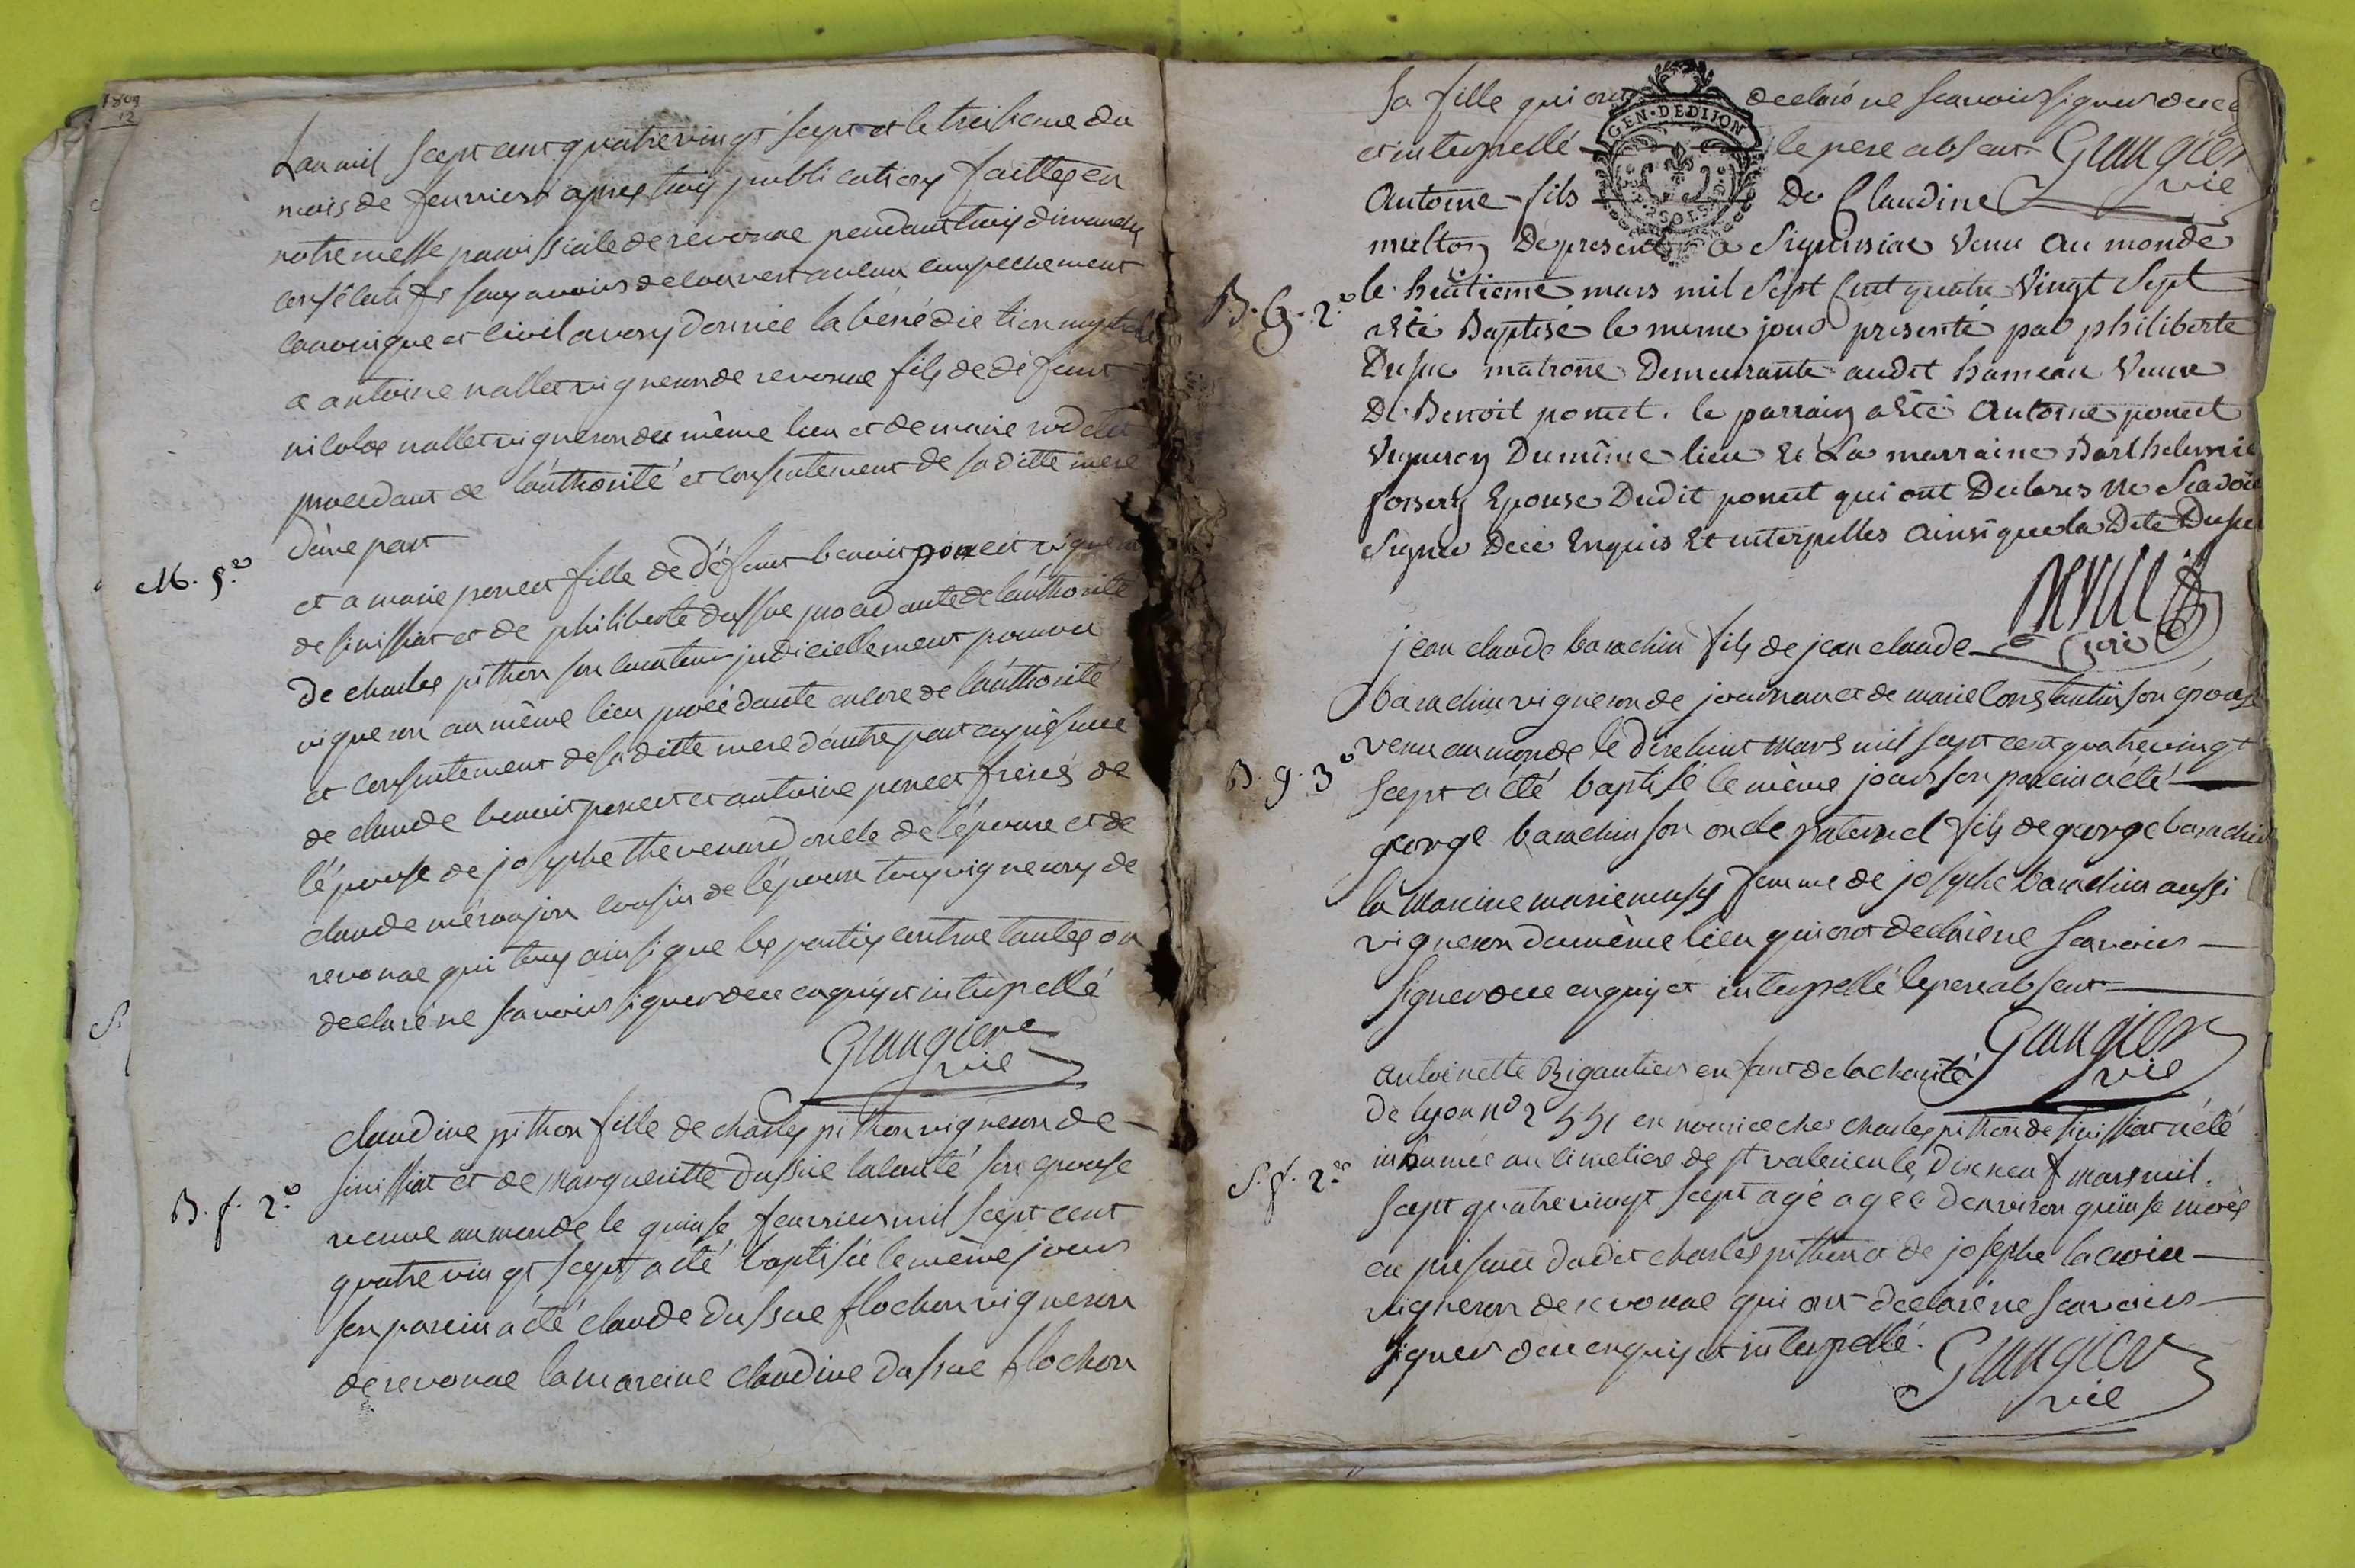 1809
12
Lan mil sept cent quatre vingt sept et le treisieme du
mois de fevrier apres trois publications faittes en
notre messe paroissiale de revonae pendant trois dimanches
consécutifs sans avoir decouvert aucun empechement
canonique et civil avons donnée la bénédiction nuptiale
a antoine nallet vigneron de revonae fils de défunt
nicolas nallet vigneron du même lieu et de marie
procedant de l'authorité et consentement de sa ditte mere
d'une part
M. 5.e
et a marie poncet fille de défunt benoit poncet vigneron
de sinissiat et de philiberte dussue procedante de l'authorité
de charles pithon son curateur judiciellement pourvu
vigneron au même lieu procédante encore de l'authorité
et consentement de sa ditte mere d'autre part en présence
de claude benoit poncet et antoine poncet freres de
l'épouse de josephe thevenard oncle de l'épouse et de
claude cousin de l'épouse tous vignerons de
revonae qui tous ainsi que les parties contractantes on
declaré ne scavoir signer de ce enquis et interpellé
Grangier
vic
claudine pithon fille de charles pithon vigneron de
sinissiat et de margueritte dussue son epouse
B. f. 2.e
venue au monde le quinse fevrier mil sept cent
quatre vingt sept a été baptisée le même jour
son parein a été claude dussue flochon vigneron
de revonae la mareine claudine dussue flochon
sa fille qui ont declaré ne scavoir signer de ce
GEN. DE DIJON
et interpellé le pere absent Grangier
vic
Antoine fils De Claudine
multon De present a Siguissiac venu au monde
B. G. 2.e
le huitieme mars mil sept Cent quatre Vingt Sept
a Eté Baptisé le meme jour presenté par philiberte
Dusue matrone Demeurante audit hameau Veuve
De Benoit poncet. le parrain a Eté Antoine poncet
Vigneron Du même lieu Et La marraine Barthelemie
Epouse Dudit poncet qui ont Declarés ne Scavoir
Signer De ce Enquis Et interpelles Ainsi que la Dite Dusue
jean claude barachin fils de jean claude
barachin vigneron de journan et de marie Constantin son epouse
venu au monde le dixhuit mars mil sept cent quatre vingt
B. g. 3.e
sept a été baptisé le même jour son parein a été
george barachin son oncle paternel fils de george barachin
la mareine marie femme de josephe barachin aussi
vigneron du même lieu qui ont declaré ne scavoir
signer de ce enquis et interpellé le pere absent
Grangier
vic
antoinette Rigautier enfant de la charité
de lyon n.o en nourice ches charles pithon de sinissiat a été
inhumée au cimetiere de st valerien le dixneuf mars mil
S. f. 2.e
sept quatre vingt sept agé agée denviron quinse mois
en presence dudit charles pithon et de josephe lacroix
vigneron de revonae qui ont declaré ne scavoir
signer de ce enquis et interpellé.
Grangier
vic